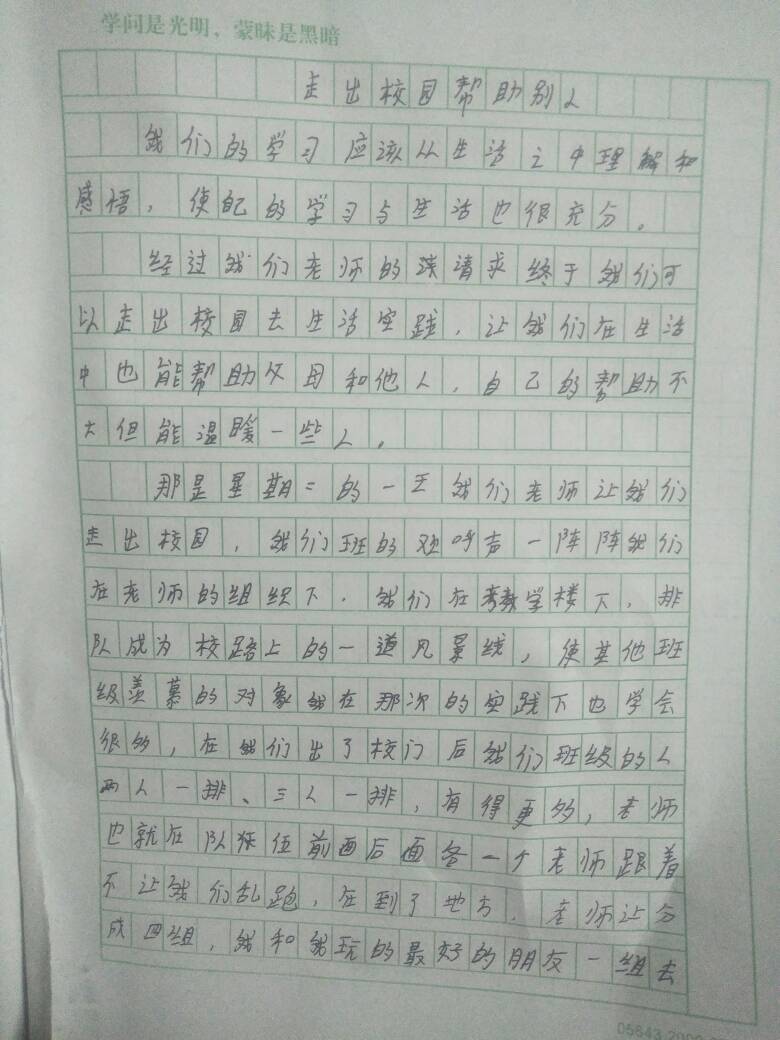 学问是光明，蒙昧是黑暗
走出校园帮助别人
我们的学习应该从生活之中理解和
感悟，使自己的学习与生活也很充分。
经过我们老师的请求终于我们可
以走出校园去生活实践，让我们在生活
中也能帮助父母和他人，自己的帮助不
大但能温暖一些人。
那是星期二的一天我们老师让我们
走出校园，我们班的欢呼声一阵阵我们
在老师的组织下，我们在教学楼下，排
队成为校路上的一道风景线，使其他班
级羡慕的对象我在那次的实践下也学会
很多，在我们出了校门后我们班级的人
两人一排、三人一排，有得更多，老师
也就在队伍前面后面各一个老师跟着
不让我们乱跑，在到了地方，老师让分
成四组，我和我玩的最好的朋友一组去